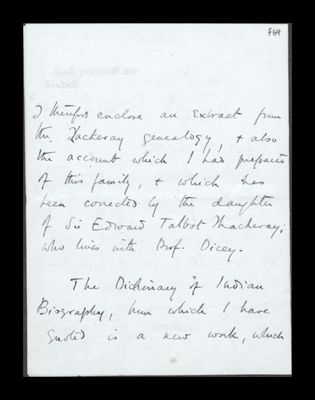 f69
I therefore enclose an extract from
the Thackeray genealogy, + also
the account which I had prepared
of this family, + which has
been corrected by the daughter
of Sir Edward Talbot Thackeray,
who lives with Prof. Dicey.
The Dictionary of Indian
Biography, from which I have
quoted is a new work, which